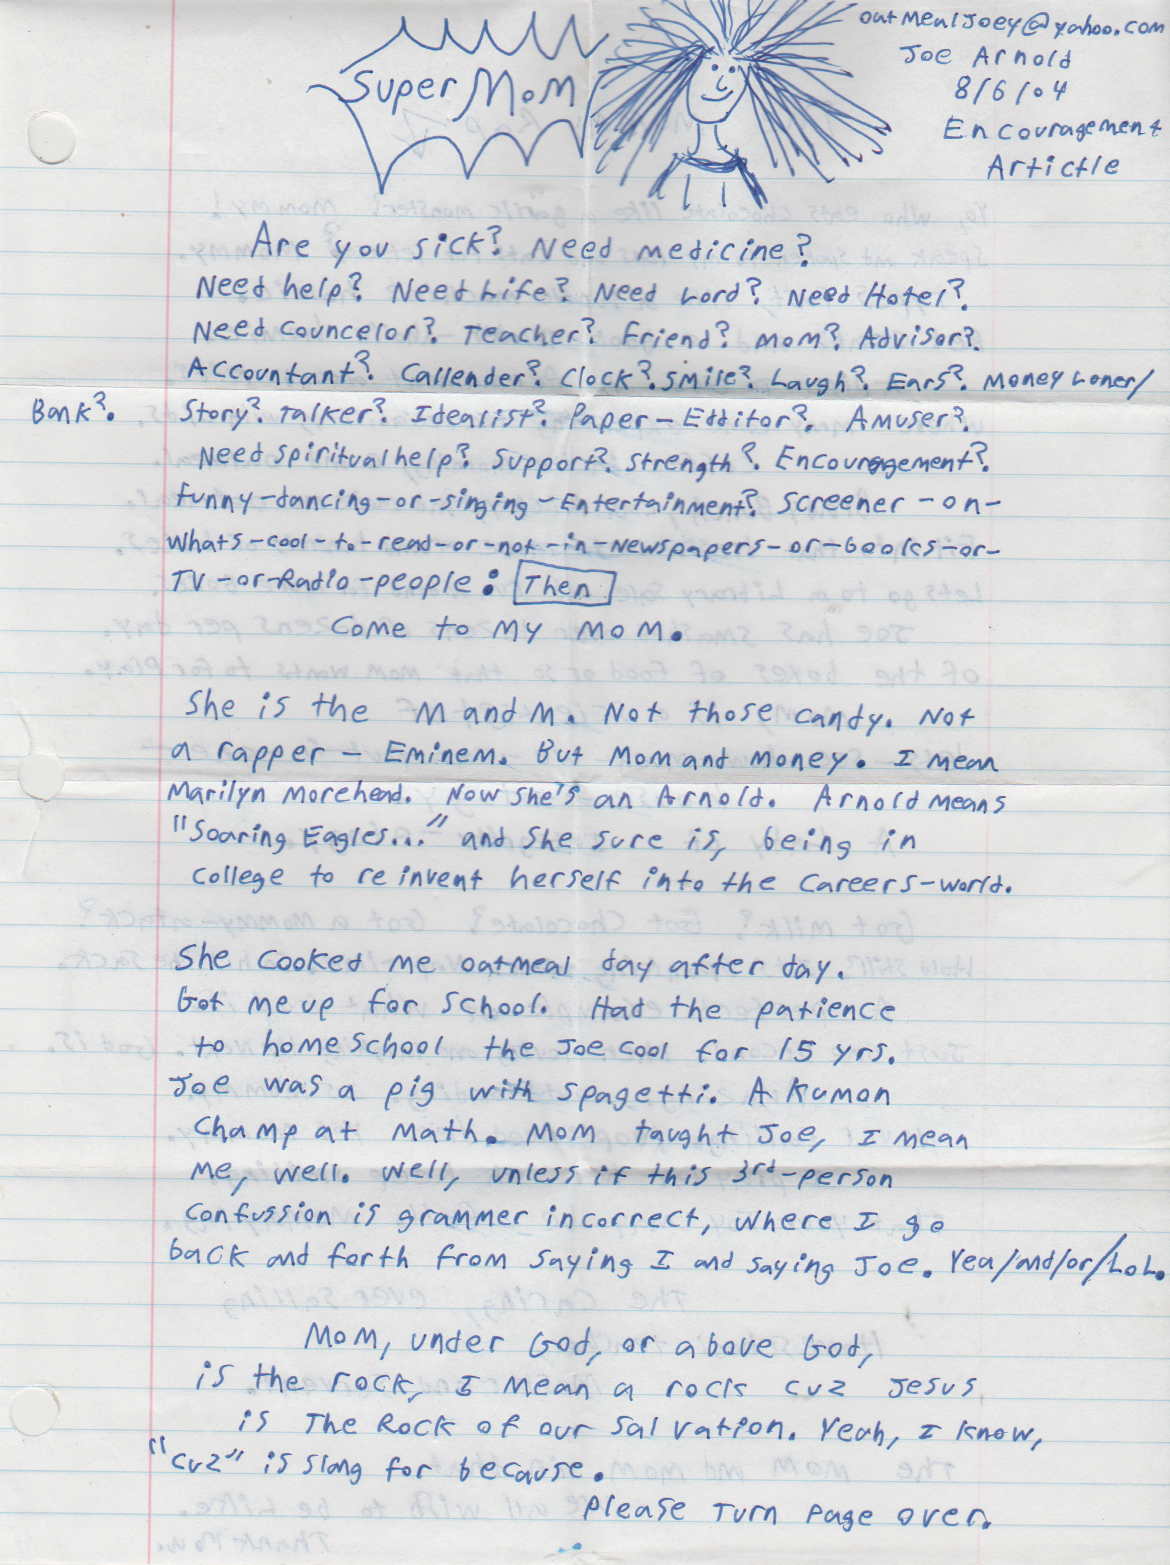 Super Mom
oatmealjoey@yahoo.com
Joe Arnold
8/6/04
Encouragement
Artictle
Are you sick? Need medicine?
Need help? Need Life? Need Lord? Need Hotel?
Need councelor? Teacher? Friend? Mom? Advisor?
Accountant? Callender? Clock? Smile? Laugh? Ears? Money Loner/
Bank? Story? Talker? Idealist? Paper-Edditor? Amuser?
Need spiritual help? Support? Strength? Encouragement?
funny-dancing-or-singing-Entertainment? Screener-on-
whats-cool-to-read-or-not-in-Newspapers-or-books-or-
TV-or-Radio-people: Then
Come to my mom.
She is the M and M. Not those candy. Not
a rapper - Eminem. But Mom and Money. I mean
Marilyn Morehead. Now she's an Arnold. Arnold means
"Soaring Eagles..." and she sure is, being in
college to reinvent herself into the careers-world.
She cooked me oatmeal day after day.
Got me up for school. Had the patience
to homeschool the Joe cool for 15 yrs.
Joe was a pig with spagetti. A Kumon
Champ at Math. Mom taught Joe, I mean
me, well. Well, unless if this 3rd-person
confussion is grammer incorrect, where I go
back and forth from saying I and saying Joe. Yea/and/or/LoL.
Mom, under God, or above God,
is the rock, I mean a rock cuz Jesus
is The Rock of our salvation. Yeah, I know,
"cuz" is slang for because.
Please Turn Page over.